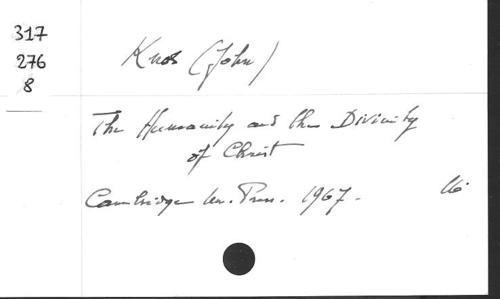 317
276
8
Knox (John)
The Humanity and the Divinity
of Christ
Cambridge Un. Press. 1967.